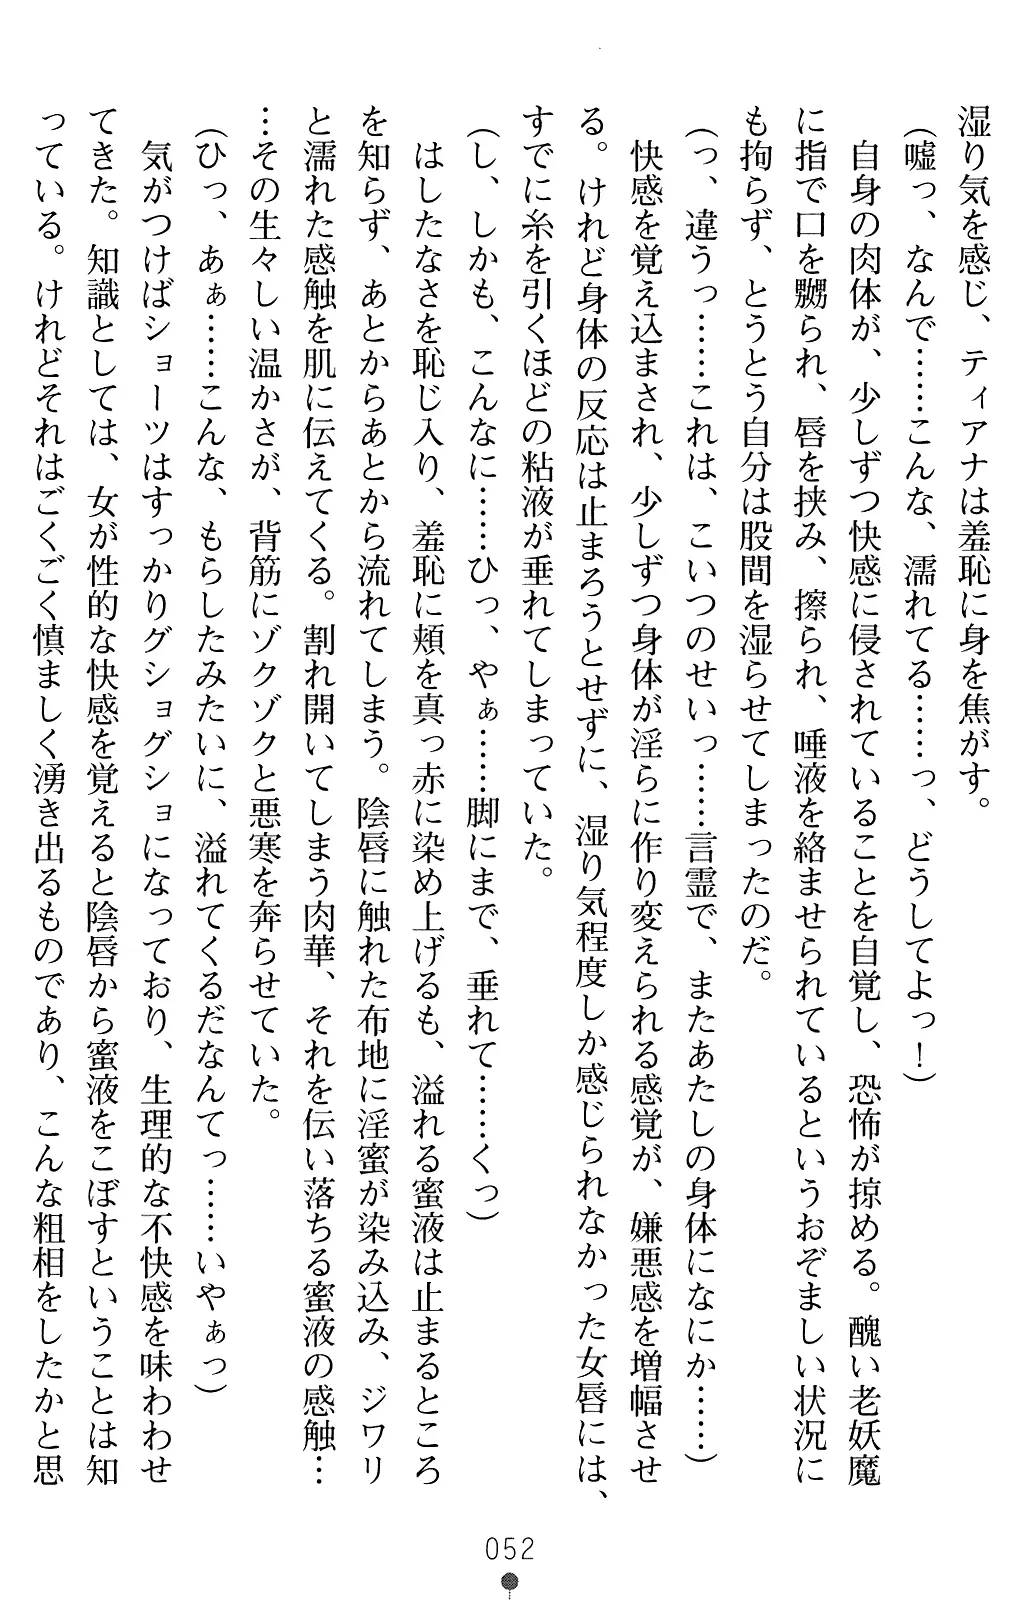 湿り気を感じ、ティアナは羞恥に身を焦がす。
(嘘っ、なんで……こんな、濡れてる……っ、どうしてよっ！)
自身の肉体が、少しずつ快感に侵されていることを自覚し、恐怖が掠める。醜い老妖魔
に指で口を嬲られ、唇を挟み、擦られ、唾液を絡ませられているというおぞましい状況に
も拘らず、とうとう自分は股間を湿らせてしまったのだ。
(っ、違うっ……これは、こいつのせいっ……言霊で、またあたしの身体になにか……)
快感を覚え込まされ、少しずつ身体が淫らに作り変えられる感覚が、嫌悪感を増幅させ
る。けれど身体の反応は止まろうとせずに、湿り気程度しか感じられなかった女唇には、
すでに糸を引くほどの粘液が垂れてしまっていた。
(し、しかも、こんなに……ひっ、やぁ……脚にまで、垂れて……くっ)
はしたなさを恥じ入り、羞恥に頬を真っ赤に染め上げるも、溢れる蜜液は止まるところ
を知らず、あとからあとから流れてしまう。陰唇に触れた布地に淫蜜が染み込み、ジワリ
と濡れた感触を肌に伝えてくる。割れ開いてしまう肉華、それを伝い落ちる蜜液の感触…
…その生々しい温かさが、背筋にゾクゾクと悪寒を奔らせていた。
(ひっ、あぁ……こんな、もらしたみたいに、溢れてくるだなんてっ……いやぁっ)
気がつけばショーツはすっかりグショグショになっており、生理的な不快感を味わわせ
てきた。知識としては、女が性的な快感を覚えると陰唇から蜜液をこぼすということは知
っている。けれどそれはごくごく慎ましく湧き出るものであり、こんな粗相をしたかと思
052